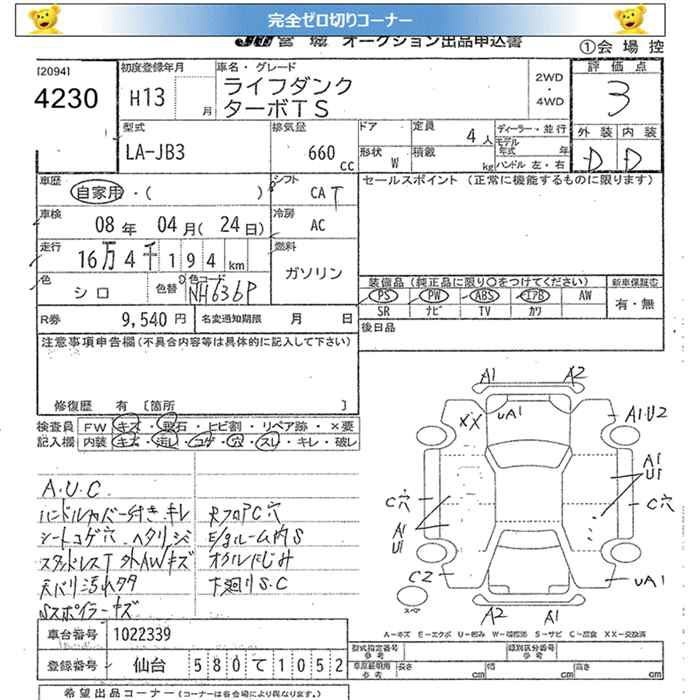 完全ゼロ切りコーナー
JU 宮城 オークション出品申込書
①会場控
[2094]
4230
初度登録年月
H13 月
車名・グレード
ライフダンク
ターボTS
2WD
・
4WD
評価点
3
外装 内装
D D
型式
LA-JB3
排気量
660 cc
ドア
定員
4人
形状
W
積載
kg
ディーラー・並行
モデル年式 年
ハンドル 左・右
車歴
自家用・( )
シフト
CA T
セールスポイント (正常に機能するものに限ります)
車検
08年 04月(24日)
冷房
AC
走行
16万4千194km
燃料
ガソリン
色
シロ
色替
色コード
NH636P
装備品(純正品に限り〇をつけてください)
新車保証書
PS PW ABS エアB AW
SR ナビ TV カワ
有・無
R券
9,540円
名変通知期限 月 日
後日品
注意事項申告欄(不具合内容等は具体的に記入して下さい)
修復歴 有 〔箇所 〕
検査員記入欄
FW キズ・飛石・ヒビ割・リペア跡・×要
内装 キズ・汚レ・コゲ・穴・スレ・キレ・破レ
A.U.C
ハンドルカバー付き キレ
Rフロア C穴
シートコゲ穴 ヘタリ シミ
E/gルーム内S
スタッドレスT 外AWキズ
オイルにじみ
天バリ汚れタタ
下廻りS.C
Sスポイラーキズ
A1 A2
XX UA1
A1・U2
A1
U1
C穴
C穴
A1
U1
C2
UA1
スペア
A2 A1
A-キズ E-エクボ U-凹み W-補修跡 S-サビ C-腐食 XX-交換済
車台番号
1022339
型式指定番号
参考
類別区分番号
参考
登録番号
仙台 580て1052
車庫証明用
参考
長さ cm
幅 cm
高さ cm
希望出品コーナー(コーナーは各会場により異なります。)